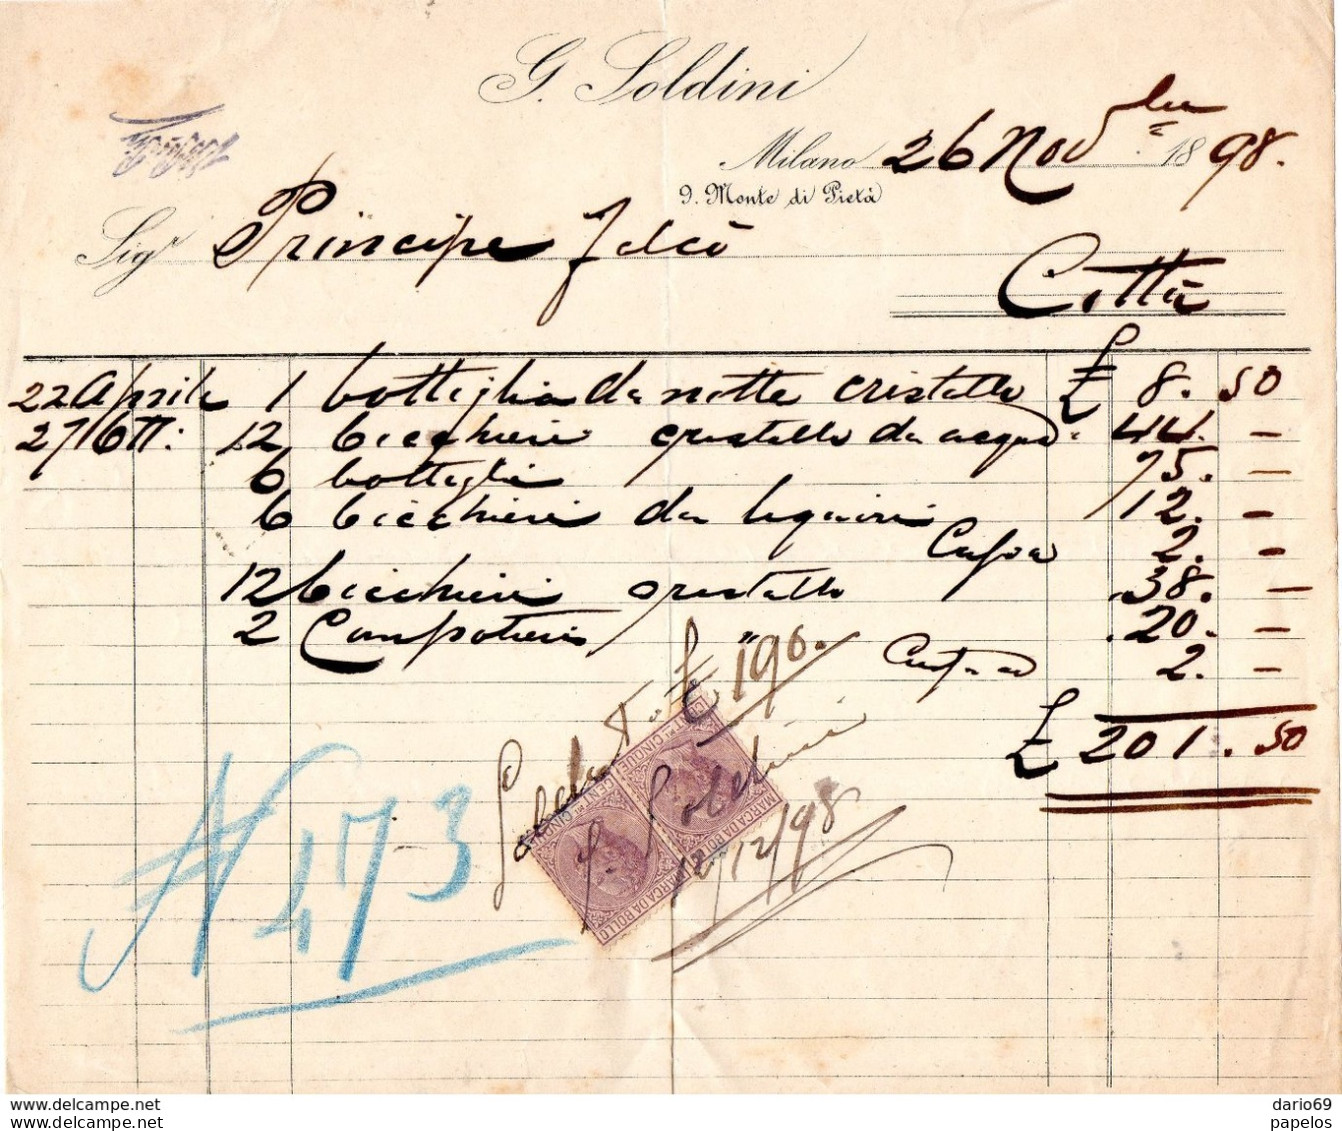 G. Soldini
Milano 26 Novbre 1898.
9. Monte di Pietà
Sigr Principe
Città
22 Aprile 1 bottiglia da notte cristallo £ 8. 50
27 Ott: 12 bicchieri cristallo da acqua 44. —
6 bottiglie 75. —
6 bicchieri da liquori 12. —
Cassa 2. —
12 bicchieri cristallo 38. —
2 Compotiere " 20. —
2. —
£ 201. 50
£ 196.
Saldato
G. Soldini
12/12/98
N 473
CENT.MI CINQUE
MARCA DA BOLLO
CENT.MI CINQUE
MARCA DA BOLLO
www.delcampe.net
www.delcampe.net
dario69
papelos